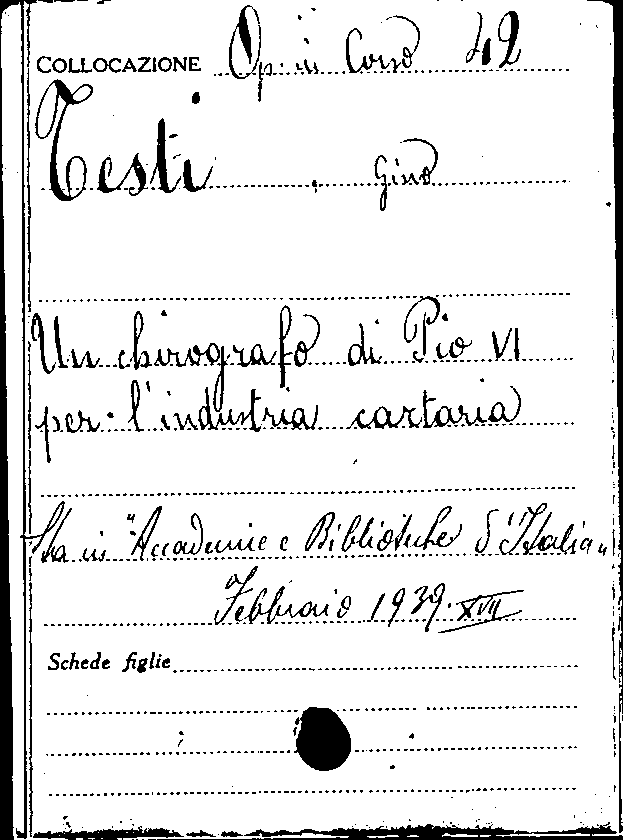 COLLOCAZIONE Op. in Corso 42
Testi Gino
Un chirografo di Pio VI
per l'industria cartaria
Sta in "Accademie e Biblioteche d'Italia"
Febbraio 1939. XVII
Schede figlie